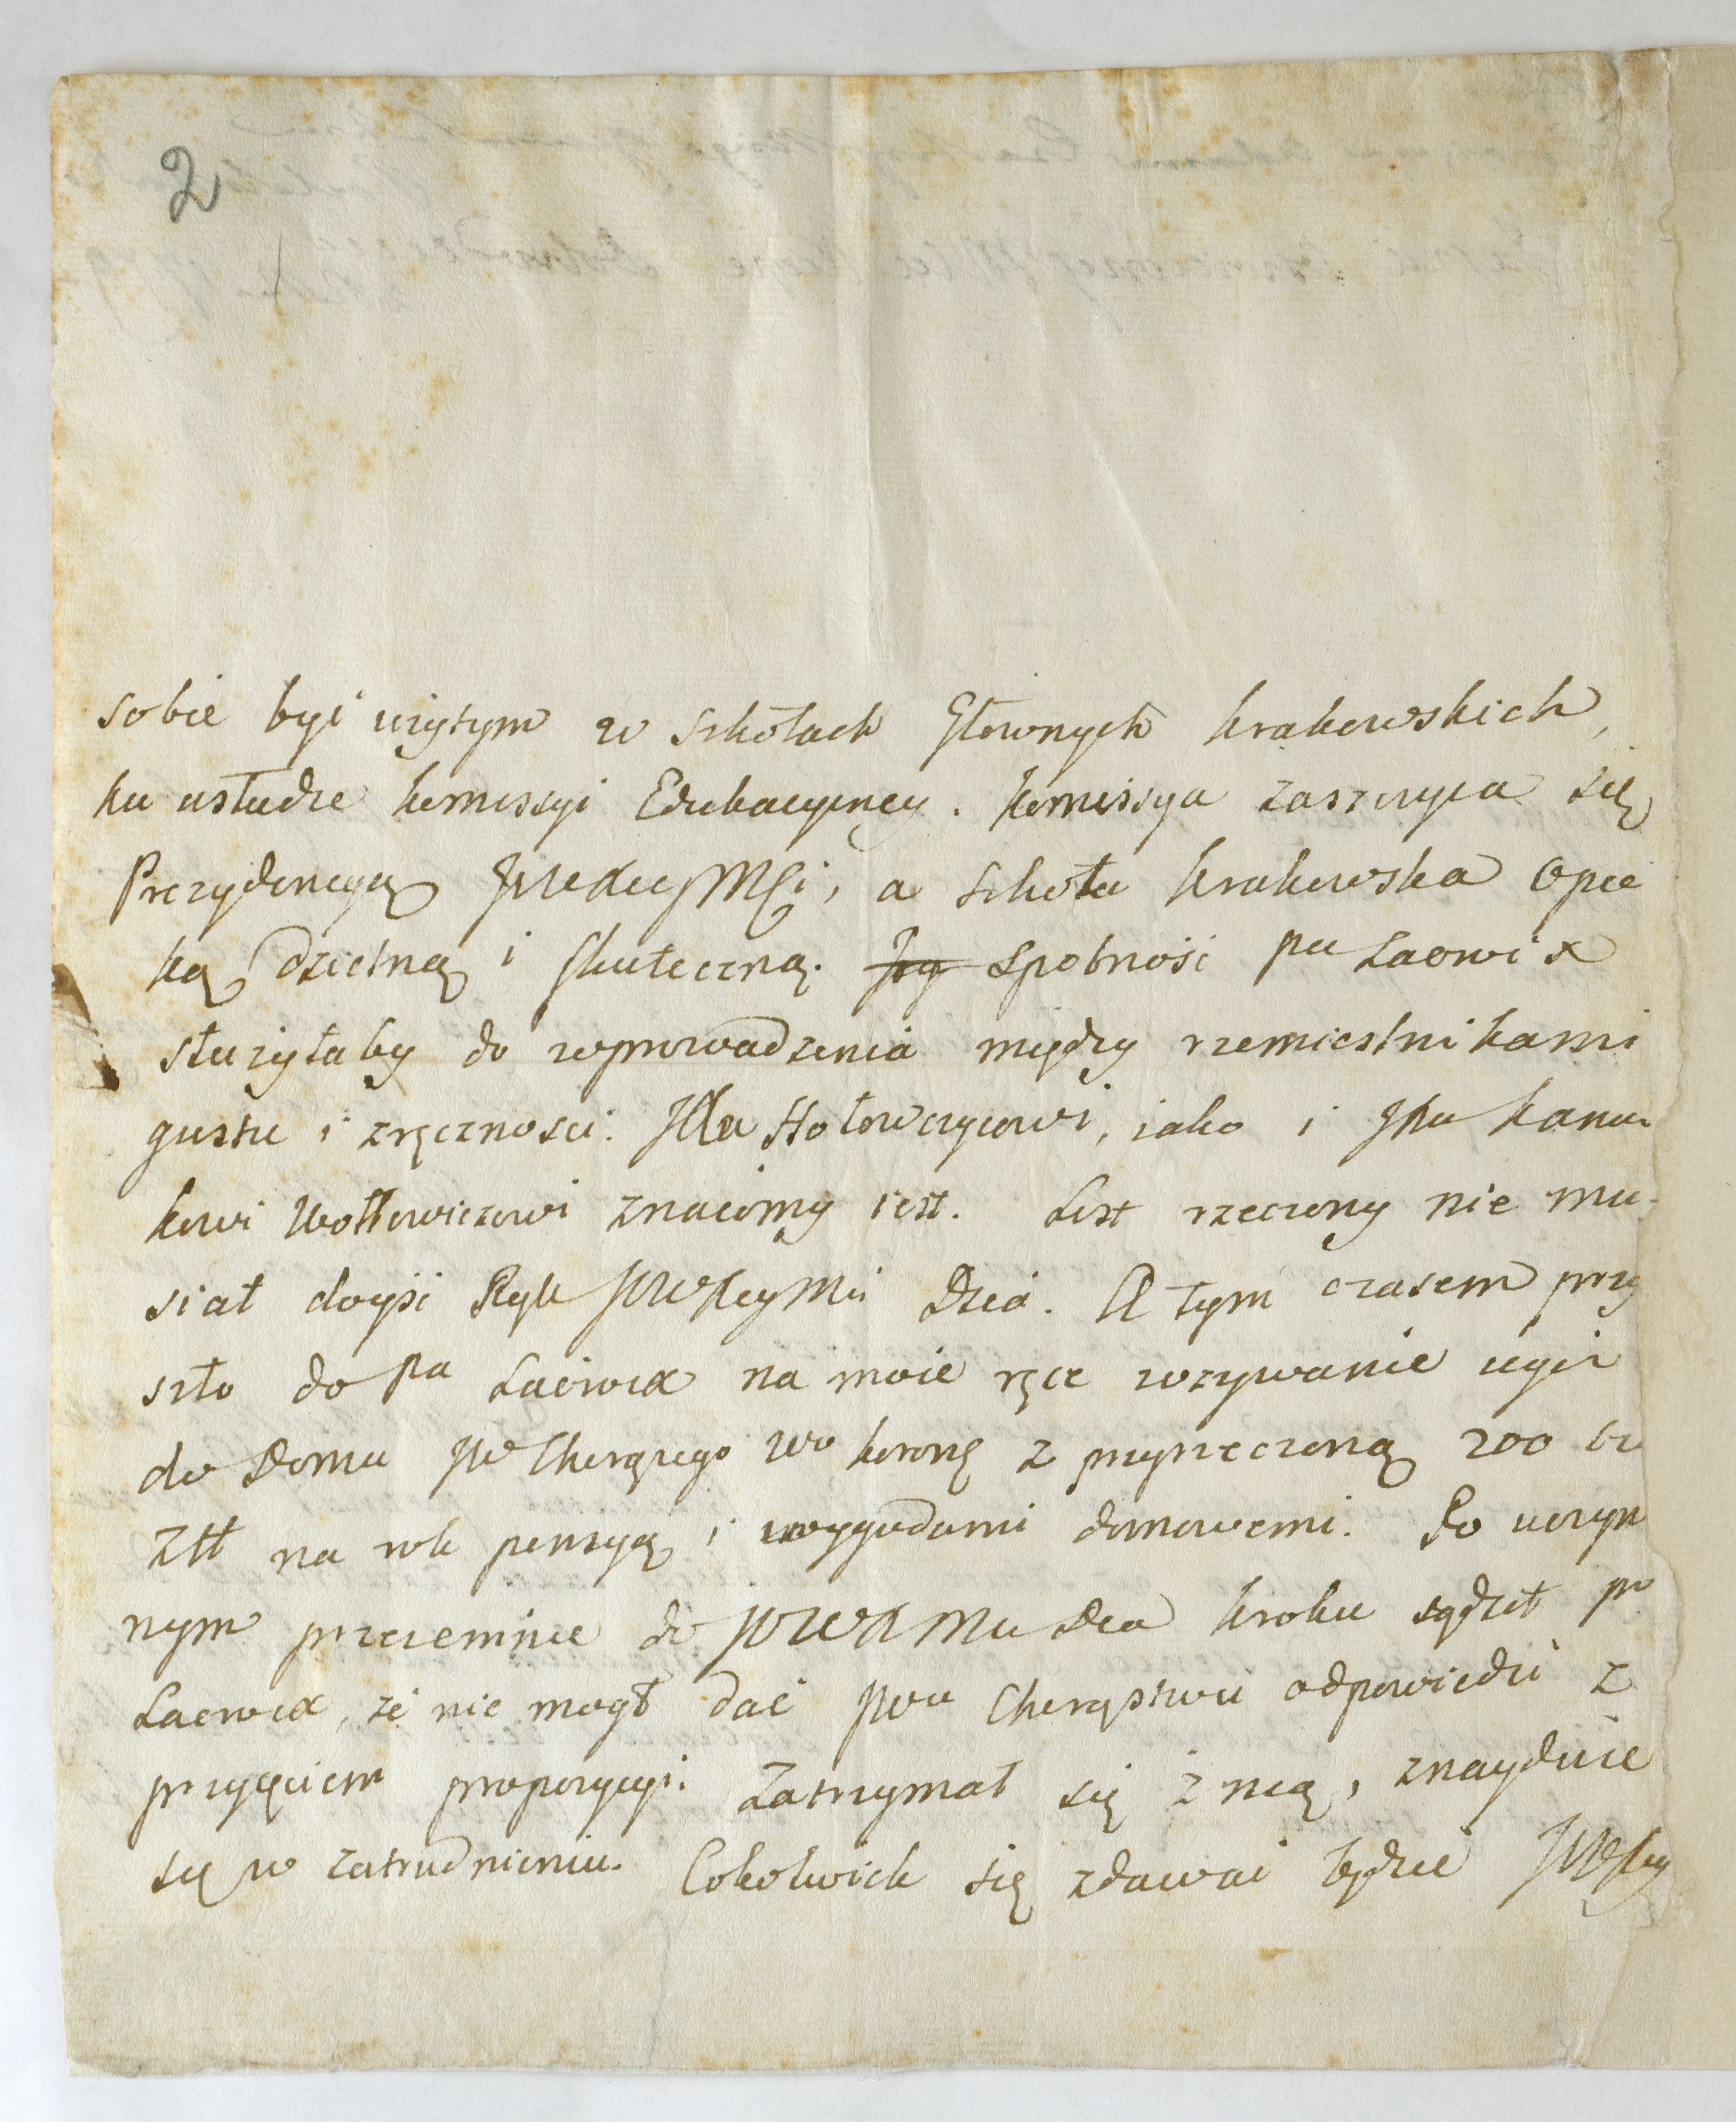 2
sobie być użytym w Szkołach Głownych Krakowskich,
ku usłudze Komissyi Edukacyiney. Komissya zaszczyca się
Prezydencyą JWXcyMci, a Szkoła Krakowska Opie
ką dzielną i skuteczną. Jey Spobność Pa Lacroix
służyłaby do wprowadzenia między rzemiestnikami
gustu i zręczności. Hołowczycowi, iako i kano
kowi Wołłowiczowi znaiomy iest. List rzeczony nie mu-
siał doyść Rąk JWXcyMci Dzia. A tym czasem przy
szło do Pa Lacroix na moie ręce wzywanie uczyć
do Domu JW Chorążego Wo Korong z przyrzeczoną 200 cz
Złł na rok pensyą i wygodami domowemi. Po uczyn
nym przezemnie do kroku sądził P
Lacroix, że nie mogł dać JWu Chorąstwu odpowiedzi z
przyięciem propozycyi. Zatrzymał się z nią, znayduie
się w zatrudnieniu. Cokolwiek się zdawać będzie JWXcy